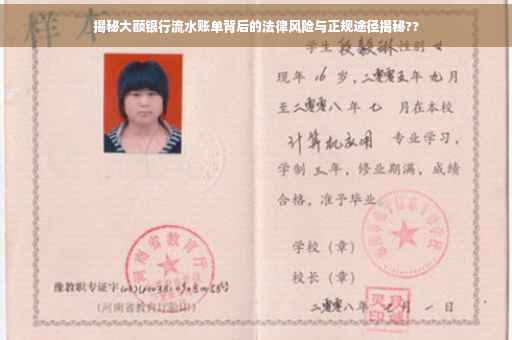 揭秘大额银行流水账单背后的法律风险与正规途径揭秘??
样本
学生段毅琳性别女
现年16岁,二零零五年九月
至二零零八年七月在本校
计算机应用 专业学习,
学制三年,修业期满,成绩
合格,准予毕业。
学校(章)
校长(章)
二零零八年 月一日
河南省教育厅
豫教职专证字
(河南省教育厅验印)